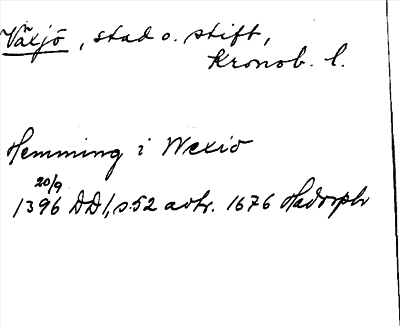 Växjö, stad o. stift,
Kronob. l.
Hemming i Wexiö
20/9
1396 DD1, s.52 avtr. 1676 Hadorph